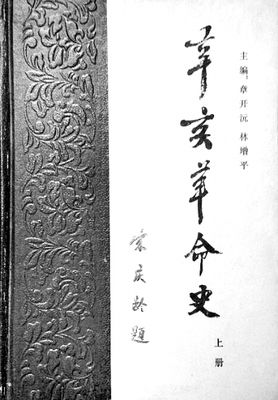 主编:章开沅 林增平
辛亥革命史
上册
宋庆龄题